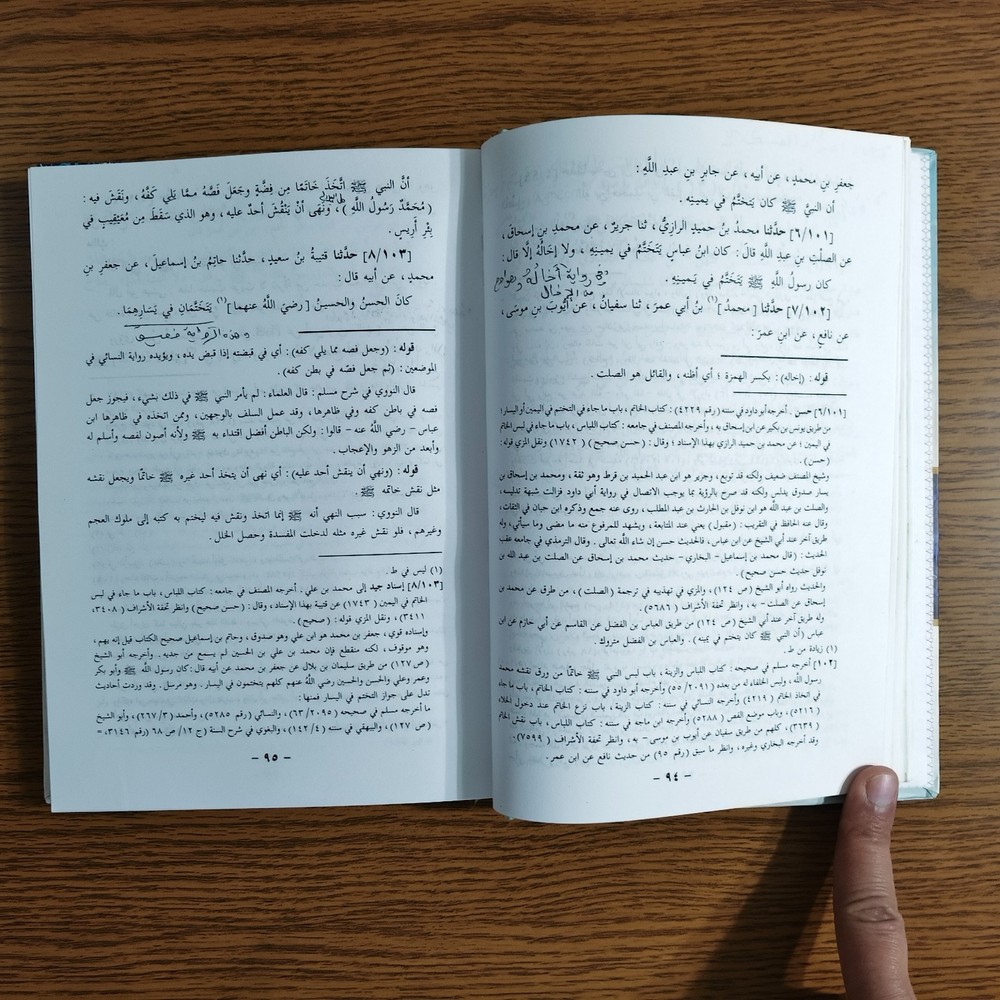 جعفرِ بنِ محمدٍ، عن أبيه، عن جابرِ بنِ عبدِ اللَّهِ :
أن النبيَّ ﷺ كان يَتختَّمُ في يمينِه .
[٦/١٠١] حدَّثنا محمدُ بنُ حميدٍ الرازيُّ، ثنا جريرٌ، عن محمدِ بنِ إسحاقَ،
عن الصلْتِ بنِ عبدِ اللَّهِ قالَ: كان ابنُ عباسٍ يَتَختَّمُ في يمينِهِ، ولا إخَالُهُ إلَّا قال:
كان رسولُ اللَّهِ ﷺ يَتختَّمُ في يمينِهِ .
وفي رواية أخاله وهو أفصح
من الإخال
[٧/١٠٢] حدَّثنا [ محمدُ ](١) بنُ أبي عمرَ، ثنا سفيانُ، عن أيُّوبَ بنِ موسَى،
عن نافعٍ، عن ابنِ عمرَ :
قوله : (إخاله): بكسر الهمزة ؛ أي أظنه ، والقائل هو الصلت .
[٦/١٠١] حسن . أخرجه أبو داود في سننه (رقم ٤٢٢٩) : كتاب الخاتم، باب ما جاء في التختم في اليمين أو اليسار
من طريق يونس بن بكير عن ابن إسحاق به ، وأخرجه المصنف في جامعه : كتاب اللباس ، باب ما جاء في لبس الخاتم
في اليمين ؛ عن محمد بن حميد الرازي بهذا الإسناد ؛ وقال : (حسن صحيح) (١٧٤٢) ونقل المزي قوله :
(حسن) .
وشيخ المصنف ضعيف ولكنه قد توبع، وجرير هو ابن عبد الحميد بن قرط وهو ثقة ، ومحمد بن إسحاق بن
يسار صدوق يدلس ولكنه قد صرح بالرؤية مما يوجب الاتصال في رواية أبي داود فزالت شبهة تدليسه،
والصلت بن عبد اللَّه هو ابن نوفل بن الحارث بن عبد المطلب ، روى عنه جمع وذكره ابن حبان في الثقات،
وقال عنه الحافظ في التقريب : (مقبول) يعني عند المتابعة ، ويشهد للمرفوع منه ما مضى وما سيأتي، وله
طريق آخر عند أبي الشيخ عن ابن عباس، فالحديث حسن إن شاء اللَّه تعالى . وقال الترمذي في جامعه عقب
الحديث : (قال محمد بن إسماعيل – البخاري – حديث محمد بن إسحاق عن الصلت بن عبد اللَّه بن
نوفل حديث حسن صحيح) .
والحديث رواه أبو الشيخ (ص ١٢٤) ، والمزي في تهذيبه في ترجمة (الصلت) ، من طرق عن محمد بن
إسحاق عن الصلت – به ، وانظر تحفة الأشراف (٥٦٨٦) .
وله طريق آخر عند أبي الشيخ (ص ١٢٤) من طريق العباس بن الفضل عن القاسم عن أبي حازم عن ابن
عباس (أن النبي ﷺ كان يتختم في يمينه) . والعباس بن الفضل متروك .
(١) زيادة من ط .
[١٠٢] أخرجه مسلم في صحيحه : كتاب اللباس والزينة ، باب لبس النبي ﷺ خاتمًا من ورق نقشه محمد
رسول اللَّه، ولبس الخلفاء له من بعده (٢٠٩١/ ٥٥) وأخرجه أبو داود في سننه : كتاب الخاتم، باب ما جاء
في اتخاذ الخاتم (٤٢١٩) وأخرجه النسائي في سننه : كتاب الزينة ، باب نزع الخاتم عند دخول الخلاء
(٥٢١٦) ، وباب موضع الفص (٥٢٨٨) وأخرجه ابن ماجه في سننه : كتاب اللباس ، باب نقش الخاتم
(٣٦٣٩) ، كلهم من طريق سفيان عن أيوب بن موسى – به ، وانظر تحفة الأشراف (٧٥٩٩) .
وقد أخرجه البخاري وغيره ، وانظر ما سبق (رقم ٩٥) من حديث نافع عن ابن عمر .
– ٩٤ –
أنَّ النبي ﷺ اتَّخَذَ خَاتَمًا مِن فِضَّةٍ وجَعَلَ فَصَّهُ ممَّا يَلي كَفَّهُ، ونَقَشَ فيه :
( مُحَمَّدٌ رَسُولُ اللَّهِ )، ونَهَى أنْ يَنْقُشَ أحدٌ عليه ، وهو الذي سَقَطَ مِن مُعَيْقِيبٍ في
بِئْرِ أَرِيسٍ .
[٨/١٠٣] حدَّثنا قتيبةُ بنُ سعيدٍ ، حدَّثنا حاتِمُ بنُ إسماعيلَ ، عن جعفرِ بنِ
محمدٍ ، عن أبيه قال :
كانَ الحسنُ والحسينُ [ رضيَ اللَّهُ عنهما ](١) يَتختَّمَانِ في يَسارِهِمَا .
وهذه الرواية ضعيفة
قوله : (وجعل فصه مما يلي كفه) : أي في قبضته إذا قبض يده ، ويؤيده رواية النسائي في
الموضعين : (ثم جعل فصّه في بطن كفه) .
قال النووي في شرح مسلم : قال العلماء : لم يأمر النبي ﷺ في ذلك بشيء ، فيجوز جعل
فصه في باطن كفه وفي ظاهرها ، وقد عمل السلف بالوجهين ، وممن اتخذه في ظاهرها ابن
عباس – رضي اللَّه عنه – قالوا : ولكن الباطن أفضل اقتداء به ﷺ ولأنه أصون لفصه وأسلم له
وأبعد من الزهو والإعجاب .
قوله : (ونهى أن ينقش أحد عليه) : أي نهى أن يتخذ أحد غيره ﷺ خاتمًا ويجعل نقشه
مثل نقش خاتمه ﷺ .
قال النووي : سبب النهي أنه ﷺ إنما اتخذ ونقش فيه ليختم به كتبه إلى ملوك العجم
وغيرهم ، فلو نقش غيره مثله لدخلت المفسدة وحصل الخلل .
(١) ليس في ط .
[٨/١٠٣] إسناد جيد إلى محمد بن علي . أخرجه المصنف في جامعه : كتاب اللباس ، باب ما جاء في لبس
الخاتم في اليمين (١٧٤٣) عن قتيبة بهذا الإسناد ، وقال : ( حسن صحيح ) وانظر تحفة الأشراف (٣٤٠٨ ،
٣٤١١) ، ونقل المزي قوله : ( صحيح ) .
وإسناده قوي ، جعفر بن محمد هو ابن علي وهو صدوق ، وحاتم بن إسماعيل صحيح الكتاب قيل إنه يهم ،
وهو موقوف ، لكنه منقطع فإن محمد بن علي بن الحسين لم يسمع من جديه . وأخرجه أبو الشيخ
(ص ١٢٧) من طريق سليمان بن بلال عن جعفر بن محمد عن أبيه قال : كان رسول اللَّه ﷺ وأبو بكر
وعمر وعلي والحسن والحسين رضي اللَّه عنهم كلهم يتختمون في اليسار . وهو مرسل . وقد وردت أحاديث
تدل على جواز التختم في اليسار فمنها :
ما أخرجه مسلم في صحيحه (٢٠٩٥ /٦٣) ، والنسائي (رقم ٥٢٨٥) ، وأحمد (٣/ ٢٦٧) ، وأبو الشيخ
(ص ١٢٧) ، والبيهقي في سننه (٤/ ١٤٢) ، والبغوي في شرح السنة (ج ١٢/ ص ٦٨ (رقم ٣١٤٦ ، –
– ٩٥ –